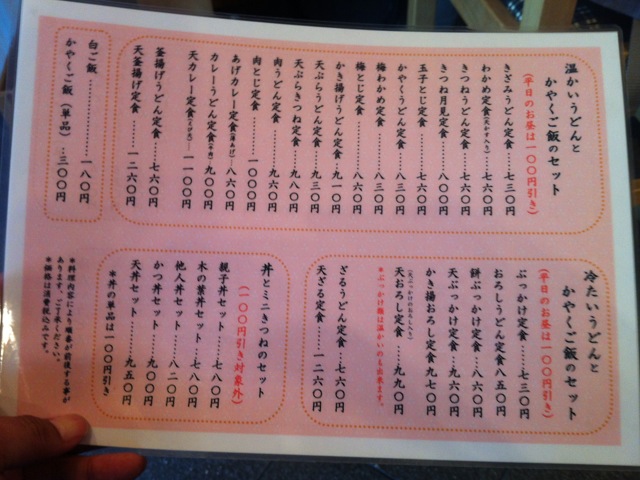 温かいうどんと
かやくご飯のセット
(平日のお昼は一〇〇円引き)
きざみうどん定食……七三〇円
わかめ定食(天かす入り)…七六〇円
きつねうどん定食……七六〇円
きつね月見定食………八〇〇円
玉子とじ定食…………七六〇円
かやくうどん定食……八三〇円
梅わかめ定食…………八三〇円
梅とじ定食……………八六〇円
かき揚げうどん定食…九一〇円
天ぷらうどん定食……九三〇円
天ぷらきつね定食……九八〇円
肉うどん定食…………九六〇円
肉とじ定食…………一〇〇〇円
あげカレー定食(薄あげ)…八六〇円
カレーうどん定食(牛肉)九〇〇円
天カレー定食(えび天)…一一〇〇円
釜揚げうどん定食……七六〇円
天釜揚げ定食………一二六〇円
白ご飯………………一八〇円
かやくご飯(単品)…三〇〇円
冷たいうどんと
かやくご飯のセット
(平日のお昼は一〇〇円引き)
ぶっかけ定食………七三〇円
おろしうどん定食八五〇円
餅ぶっかけ定食……八六〇円
天ぶっかけ定食……九六〇円
かき揚おろし定食九七〇円
天おろし定食………九九〇円
(天ぷらかけのおろし入り)
*ぶっかけ類は温かいのも出来ます。
ざるうどん定食……七六〇円
天ざる定食………一二六〇円
丼とミニきつねのセット
(一〇〇円引き対象外)
親子丼セット………七八〇円
木の葉丼セット……七八〇円
他人丼セット………八二〇円
かつ丼セット………九〇〇円
天丼セット…………九五〇円
*丼の単品は一〇〇円引き
*料理内容により順番が前後する事が
あります。ご了承ください。
*価格は消費税込みです。